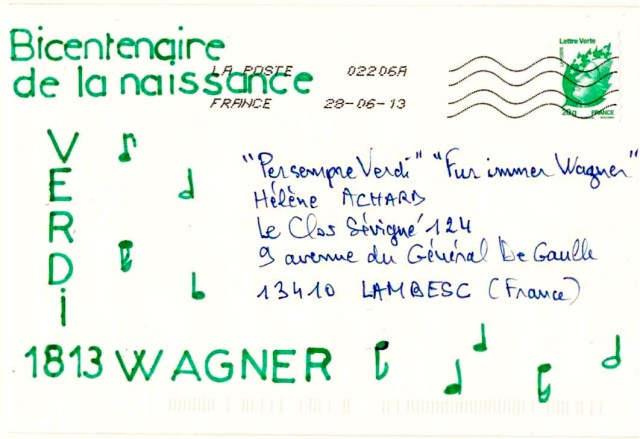 Bicentenaire
de la naissance
LA POSTE 02206A
FRANCE 28-06-13
Lettre Verte
20g FRANCE
VERDi
"Per sempre Verdi" "Fur immer Wagner"
Hélène ACHARD
Le Clos Sévigné 124
9 avenue du Général De Gaulle
13410 LAMBESC (France)
1813 WAGNER